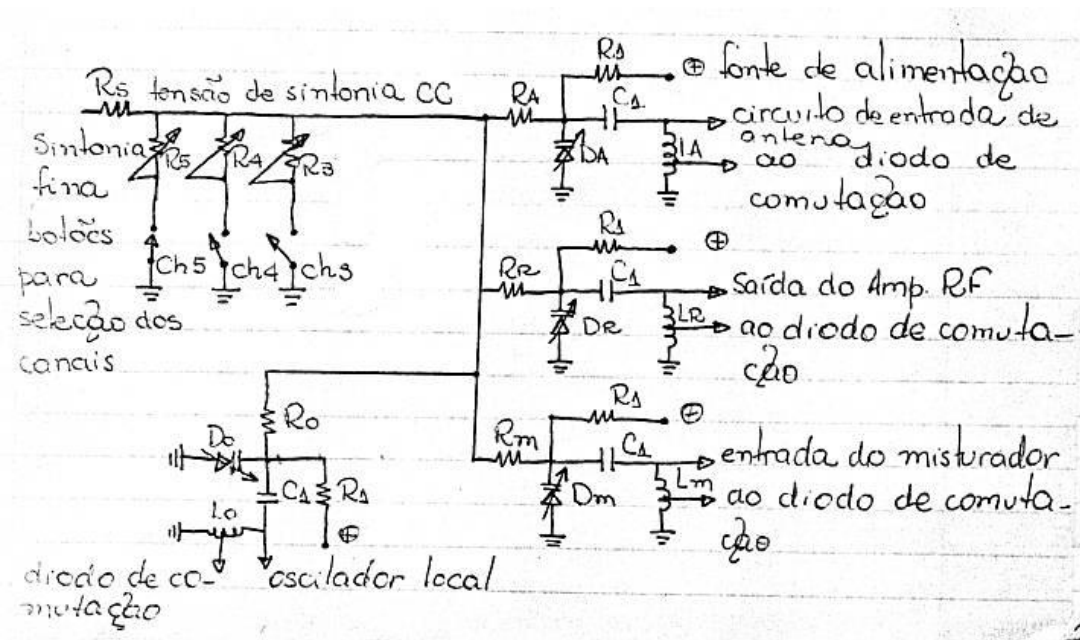 R5 tensão de sintonia CC
Sintonia
fina
R5
R4
R3
botões
para
selecção dos
canais
Ch5
ch4
ch3
RA
R1
⊕ fonte de alimentação
C1
circuito de entrada de
antena
DA
LA
ao diodo de
comutação
RR
R1
⊕
C1
Saída do Amp. RF
DR
LR
ao diodo de comuta-
ção
Rm
R1
⊕
C1
entrada do misturador
Dm
Lm
ao diodo de comuta-
ção
Ro
Do
C1
R1
Lo
⊕
diodo de co-
mutação
oscilador local